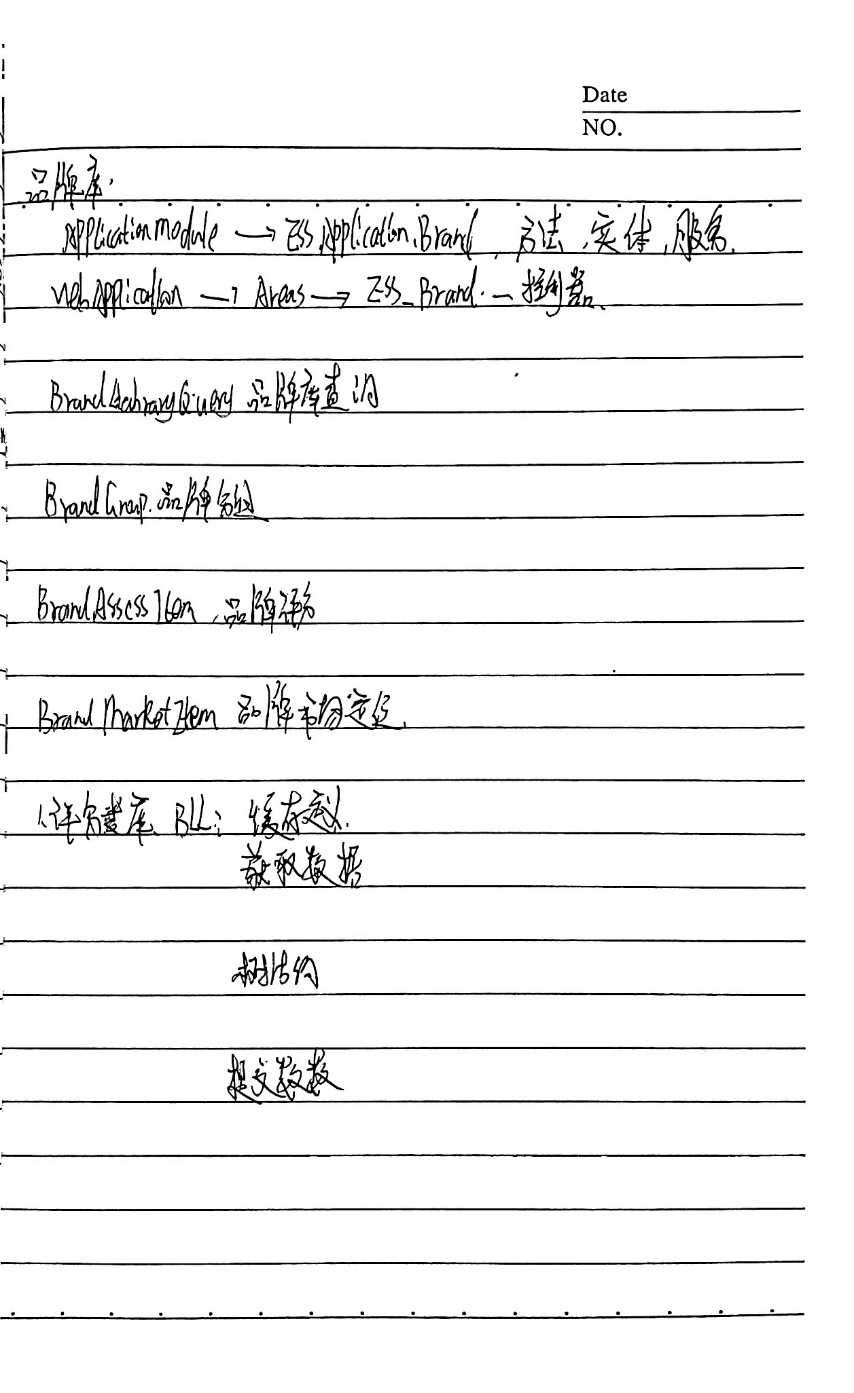 Date
NO.
品牌库.
ApplicationModule → ESS.Application.Brand, 方法, 实体, 服务.
WebApplication → Areas → ESS_Brand. — 控制器.
Query 品牌库查询
BrandGroup. 品牌分组
BrandAssessItem, 品牌评分
BrandMarketItem 品牌市场定位.
BLL: 缓存定义.
获取数据
树结构
提交数据